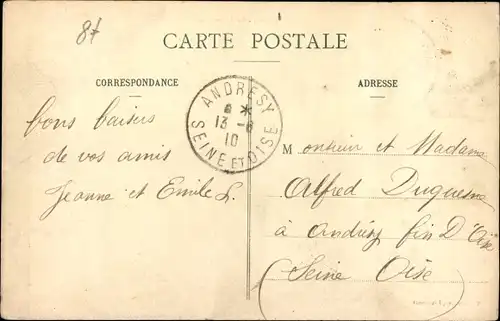 87
CARTE POSTALE
CORRESPONDANCE
ADRESSE
ANDRESY
8 *
13 -8
10
SEINE ET OISE
bons baisers
de vos amis
Jeanne et Emile L.
Monsieur et Madame
Alfred Duquesne
à Andrésy fin D'Oise
(Seine Oise)